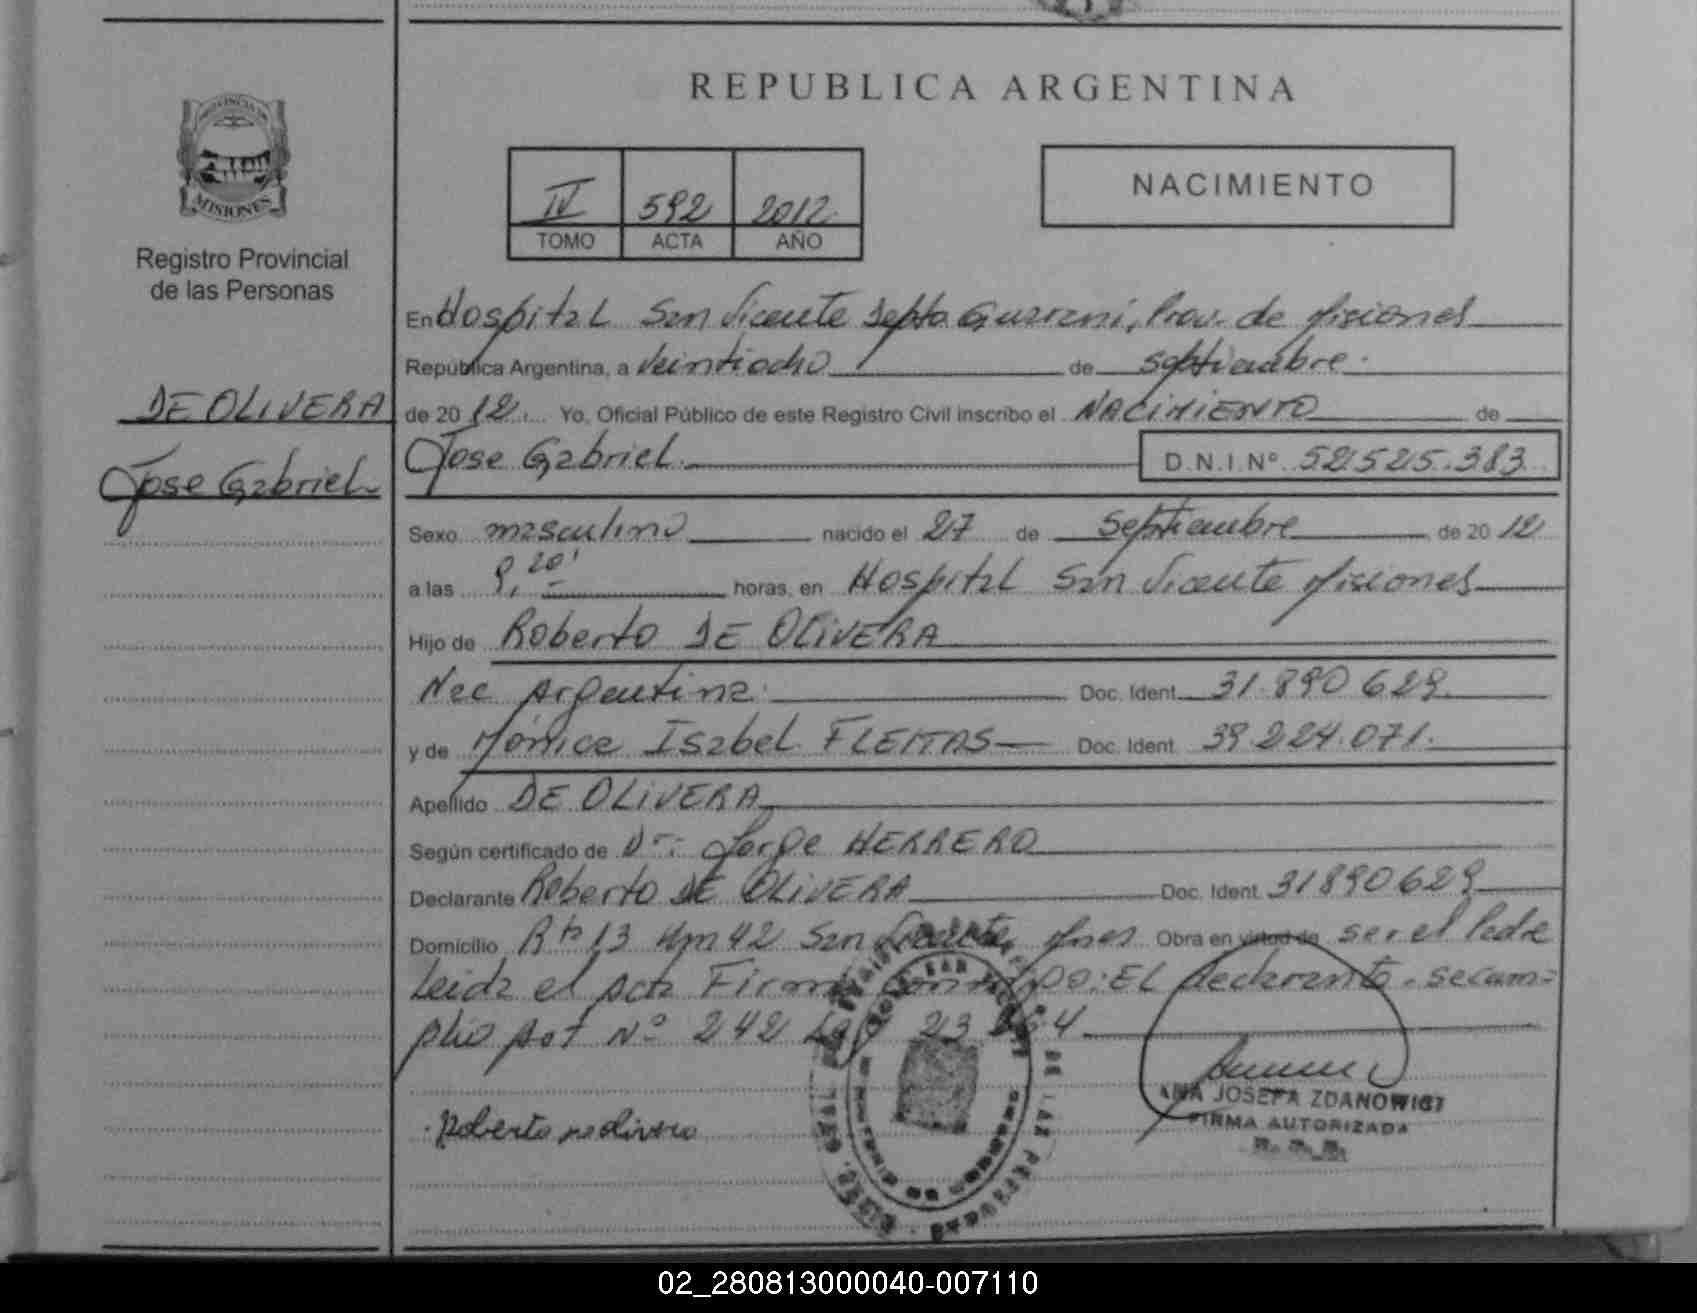 REPUBLICA ARGENTINA
PROVINCIA DE
MISIONES
Registro Provincial
de las Personas
IV 592 2012
TOMO ACTA AÑO
NACIMIENTO
DE OLIVERA
Jose Gabriel
En Hospital San Vicente Depto Guarani, Prov. de Misiones
República Argentina, a veintiocho de septiembre.
de 20 12 Yo, Oficial Público de este Registro Civil inscribo el NACIMIENTO de
Jose Gabriel. D.N.I.Nº 52525.383
Sexo masculino nacido el 27 de septiembre de 20 12
a las 9,20' horas, en Hospital San Vicente Misiones
Hijo de Roberto DE OLIVERA
Nac Argentina. Doc. Ident. 31.890 629.
y de Mónica Isabel FLEITAS Doc. Ident. 39.224.071.
Apellido DE OLIVERA
Según certificado de Dr: Jorge HERRERO
Declarante Roberto DE OLIVERA Doc. Ident. 31890629
Domicilio Rta 13 Km 42 San Vicente, Mnes Obra en virtud de ser el Padre
Leida el acta Firma DO: EL declarante. se cum=
plio Art Nº 242
Roberto De olivera
ANA JOSEFA ZDANOWICZ
FIRMA AUTORIZADA
02_280813000040-007110